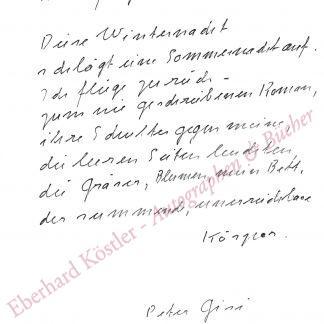 Diese Winternacht
schlägt eine Sommernacht auf.
Ich fliege zurück –
zum nie geschriebenen Roman,
ihre Schulter gegen meine,
die leeren Seiten leuchten,
die Gräser, Blumen, mein Bett,
der summend, unerreichbare
Körper.
Peter
Eberhard Köstler - Autographen & Bücher